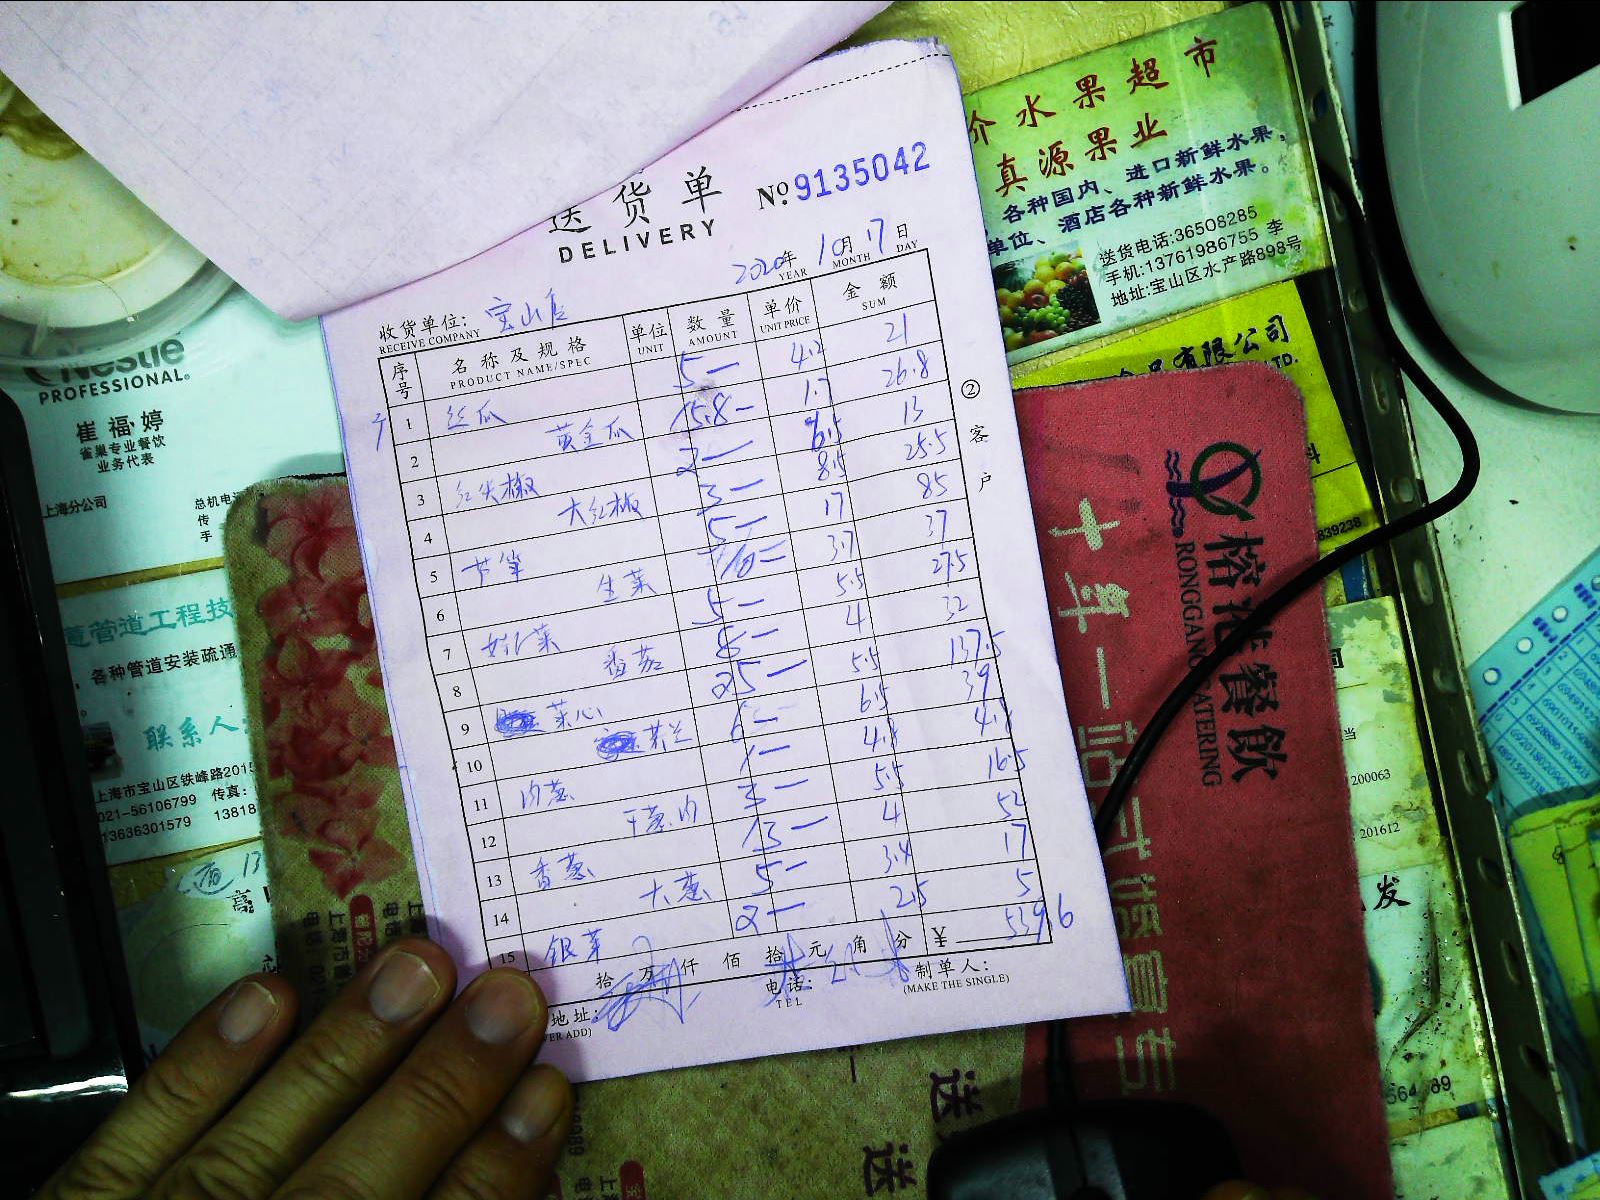 介水果超市
真源果业
各种国内、进口新鲜水果,
单位、酒店各种新鲜水果。
送货电话:36508285
手机:13761986755 李
地址:宝山区水产路898号
品有限公司
LTD.
839238
送货单
DELIVERY
№ 9135042
2020年 10月 17日
YEAR MONTH DAY
收货单位: 宝山店
RECEIVE COMPANY
序号 名称及规格 单位 数量 单价 金额
PRODUCT NAME/SPEC UNIT AMOUNT UNIT PRICE SUM
1 丝瓜 5 4.2 21
2 黄金瓜 15.8 1.7 26.8
3 红尖椒 2 6.5 13
4 大红椒 3 8.5 25.5
5 芦笋 5 17 85
6 生菜 10 3.7 37
7 5 5.5 27.5
8 番茄 8 4 32
9 菜心 25 5.5 137.5
10 芥兰 6 6.5 39
11 内葱 1 4.8 4.8
12 干葱肉 3 5.5 16.5
13 香葱 13 4 52
14 大葱 5 3.4 17
15 银芽 2 2.5 5
拾 万 仟 佰 拾 元 角 分 ¥ 539.6
地址:
电话:
TEL
制单人:
(MAKE THE SINGLE)
② 客户
Nestle
PROFESSIONAL®
崔福婷
雀巢专业餐饮
业务代表
上海分公司
总机电
传
手
管道工程技
各种管道安装疏通
联系人:
上海市宝山区铁峰路2015
021-56106799 传真:
13636301579 13818
榕港餐飲
RONGGANG CATERING
十年一
200063
201612
发
564 89
送
送